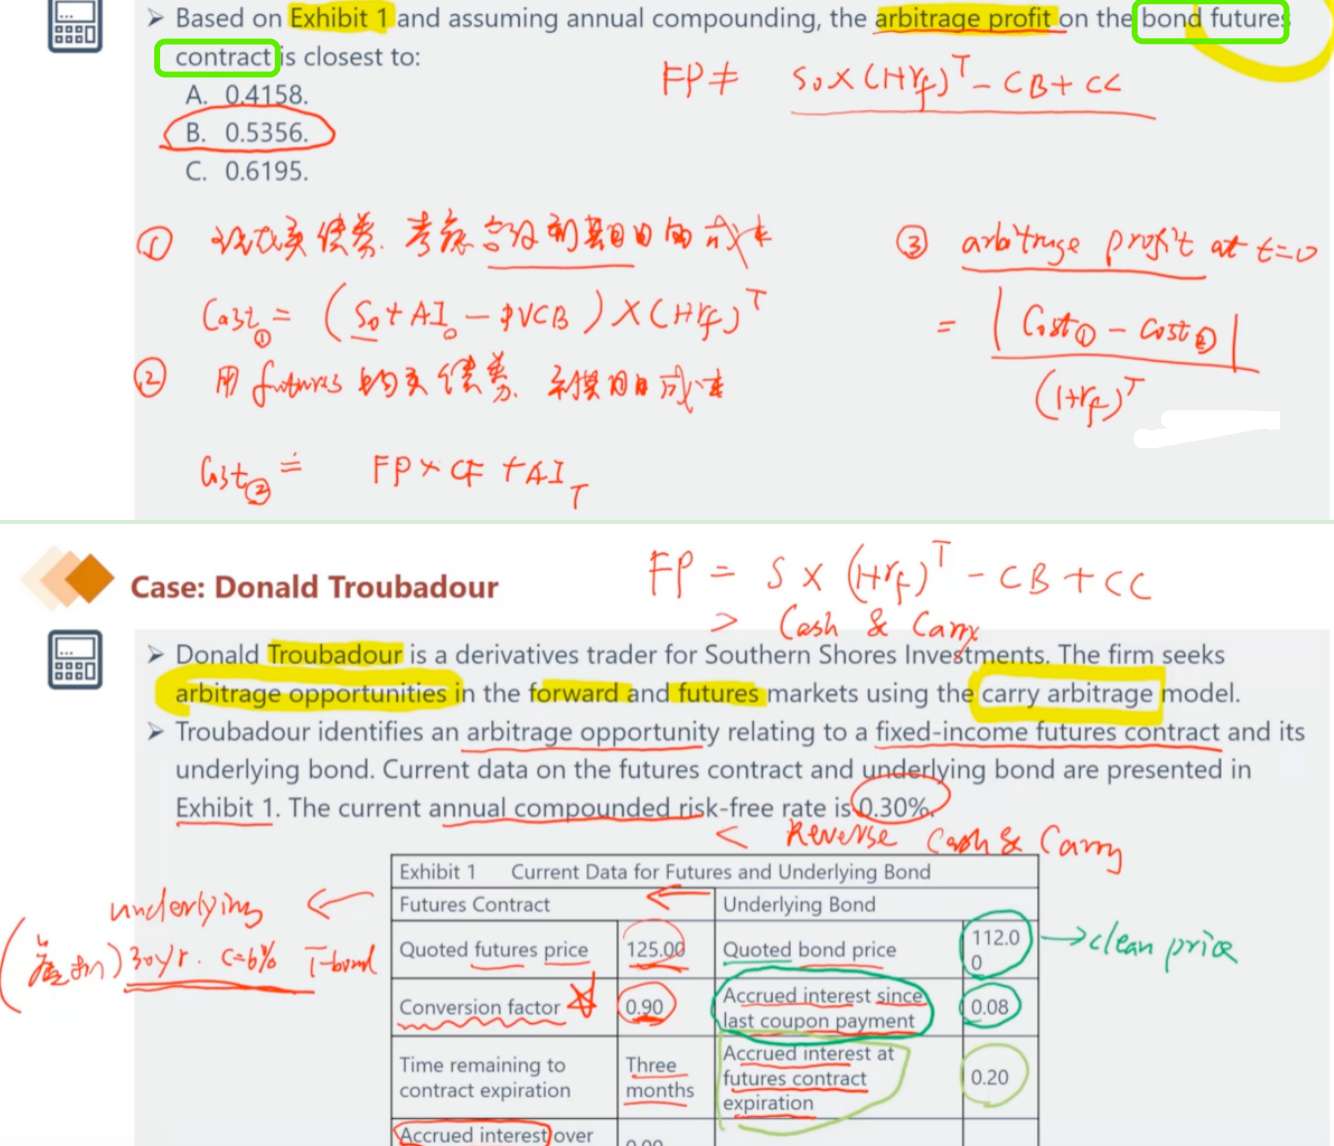 ➢ Based on Exhibit 1 and assuming annual compounding, the arbitrage profit on the bond futures
contract is closest to:
FP ≠ S₀×(1+rf)ᵀ − CB + CC
A. 0.4158.
B. 0.5356.
C. 0.6195.
① 现在买债券. 考虑 到期日的成本
③ arbitrage profit at t=0
Cost① = (S₀ + AI₀ − PVCB) × (1+rf)ᵀ
= |Cost① − Cost②|
(1+rf)ᵀ
② 用 futures 购买债券. 到期日成本
Cost② = FP × CF + AI_T
FP = S × (1+rf)ᵀ − CB + CC
Case: Donald Troubadour
> Cash & Carry
➢ Donald Troubadour is a derivatives trader for Southern Shores Investments. The firm seeks
arbitrage opportunities in the forward and futures markets using the carry arbitrage model.
➢ Troubadour identifies an arbitrage opportunity relating to a fixed-income futures contract and its
underlying bond. Current data on the futures contract and underlying bond are presented in
Exhibit 1. The current annual compounded risk-free rate is 0.30%.
< Reverse Cash & Carry
Exhibit 1 Current Data for Futures and Underlying Bond
underlying ←
Futures Contract Underlying Bond
Quoted futures price 125.00 Quoted bond price 112.0
0
→ clean price
30yr. C=6% T-bond
Conversion factor 0.90 Accrued interest since
last coupon payment 0.08
Time remaining to
contract expiration Three
months Accrued interest at
futures contract
expiration 0.20
Accrued interest over